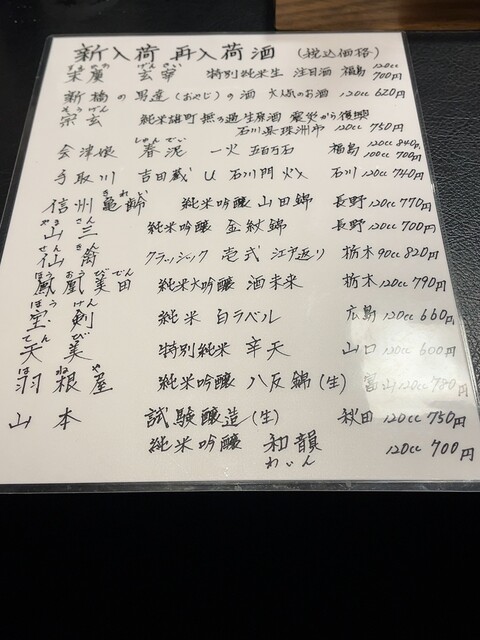 新入荷 再入荷酒 (税込価格)
廣 玄宰 特別純米生 注目酒 福島 120cc 700円
新橋の男達(おやじ)の酒 大塚のお酒 120cc 620円
そうげん
宗玄 純米雄町 無ろ過生原酒 震災から復興
石川県珠洲市 120cc 750円
しゅんでい
会津娘 春泥 一火 五百万石 福島 120cc 840円
100cc 700円
手取川 吉田蔵 U 石川門 火入 石川 120cc 740円
きれい
信州亀齢 純米吟醸 山田錦 長野 120cc 770円
やまさん
山三 純米吟醸 金紋錦 長野 120cc 700円
せんきん
仙禽 クラシック 壱式 江戸返り 栃木 90cc 820円
ほうおうびでん
鳳凰美田 純米大吟醸 酒未来 栃木 120cc 790円
ほうけん
宝剣 純米 白ラベル 広島 120cc 660円
てんび
天美 特別純米 辛天 山口 120cc 600円
はねや
羽根屋 純米吟醸 八反錦(生) 富山 120cc 780円
山本 試験醸造(生) 秋田 120cc 750円
純米吟醸 和韻 120cc 700円
わいん